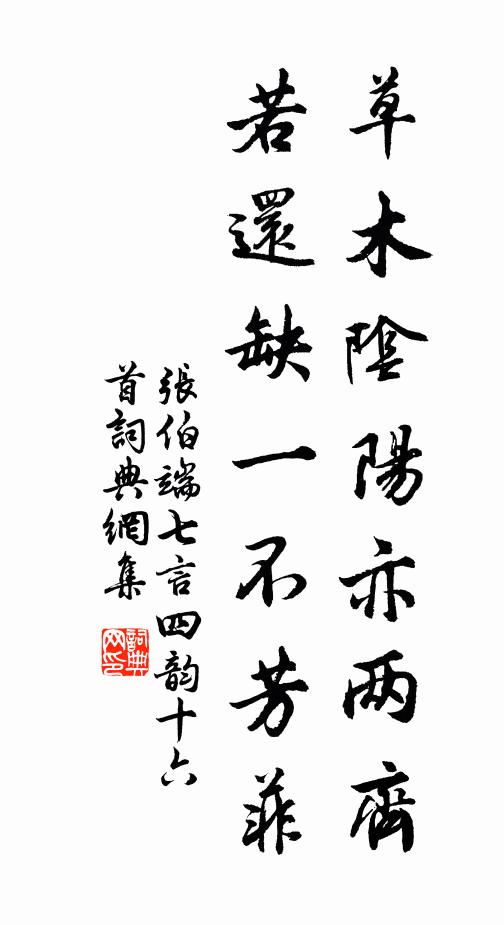 草木陰陽亦两齊
若還缺一不芳菲
張伯端七言四韵十六
首詞典網集
詞典网印